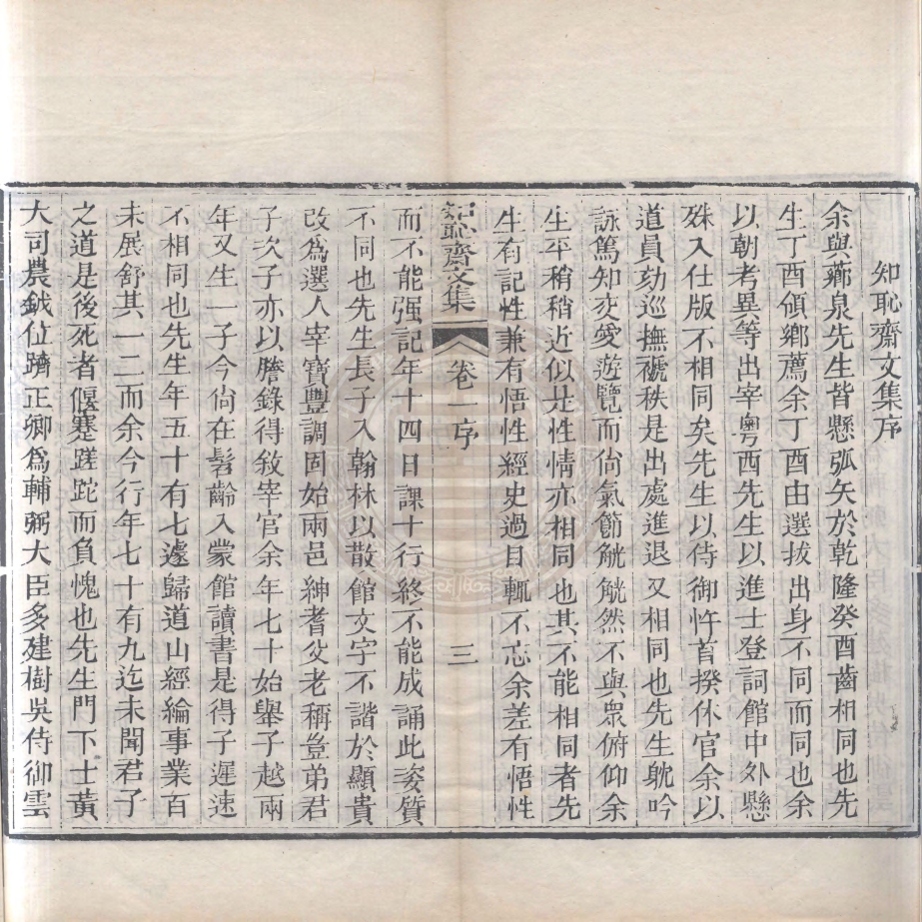 知恥齋文集序
余與薌泉先生皆懸弧矢於乾隆癸酉齒相同也先
生丁酉領鄉薦余丁酉由選拔出身不同而同也余
以朝考異等出宰粵西先生以進士登詞館中外懸
殊入仕版不相同矣先生以侍御忤首揆休官余以
道員劾巡撫褫秩是出處進退又相同也先生躭吟
詠篤知交愛遊覽而尚氣節觥觥然不與衆俯仰余
生平稍稍近似是性情亦相同也其不能相同者先
生有記性兼有悟性經史過目輒不忘余差有悟性
知恥齋文集 卷一序 三
而不能强記年十四日課十行終不能成誦此姿質
不同也先生長子入翰林以散館文字不諧於顯貴
改爲選人宰寶豐調固始兩邑紳耆父老稱豈弟君
子次子亦以謄錄得敘宰官余年七十始舉子越兩
年又生一子今尙在髫齡入蒙館讀書是得子遲速
不相同也先生年五十有七遽歸道山經綸事業百
未展舒其一二而余今行年七十有九迄未聞君子
之道是後死者偃蹇蹉跎而負愧也先生門下士黃
大司農鉞位躋正卿爲輔弼大臣多建樹吳侍御雲